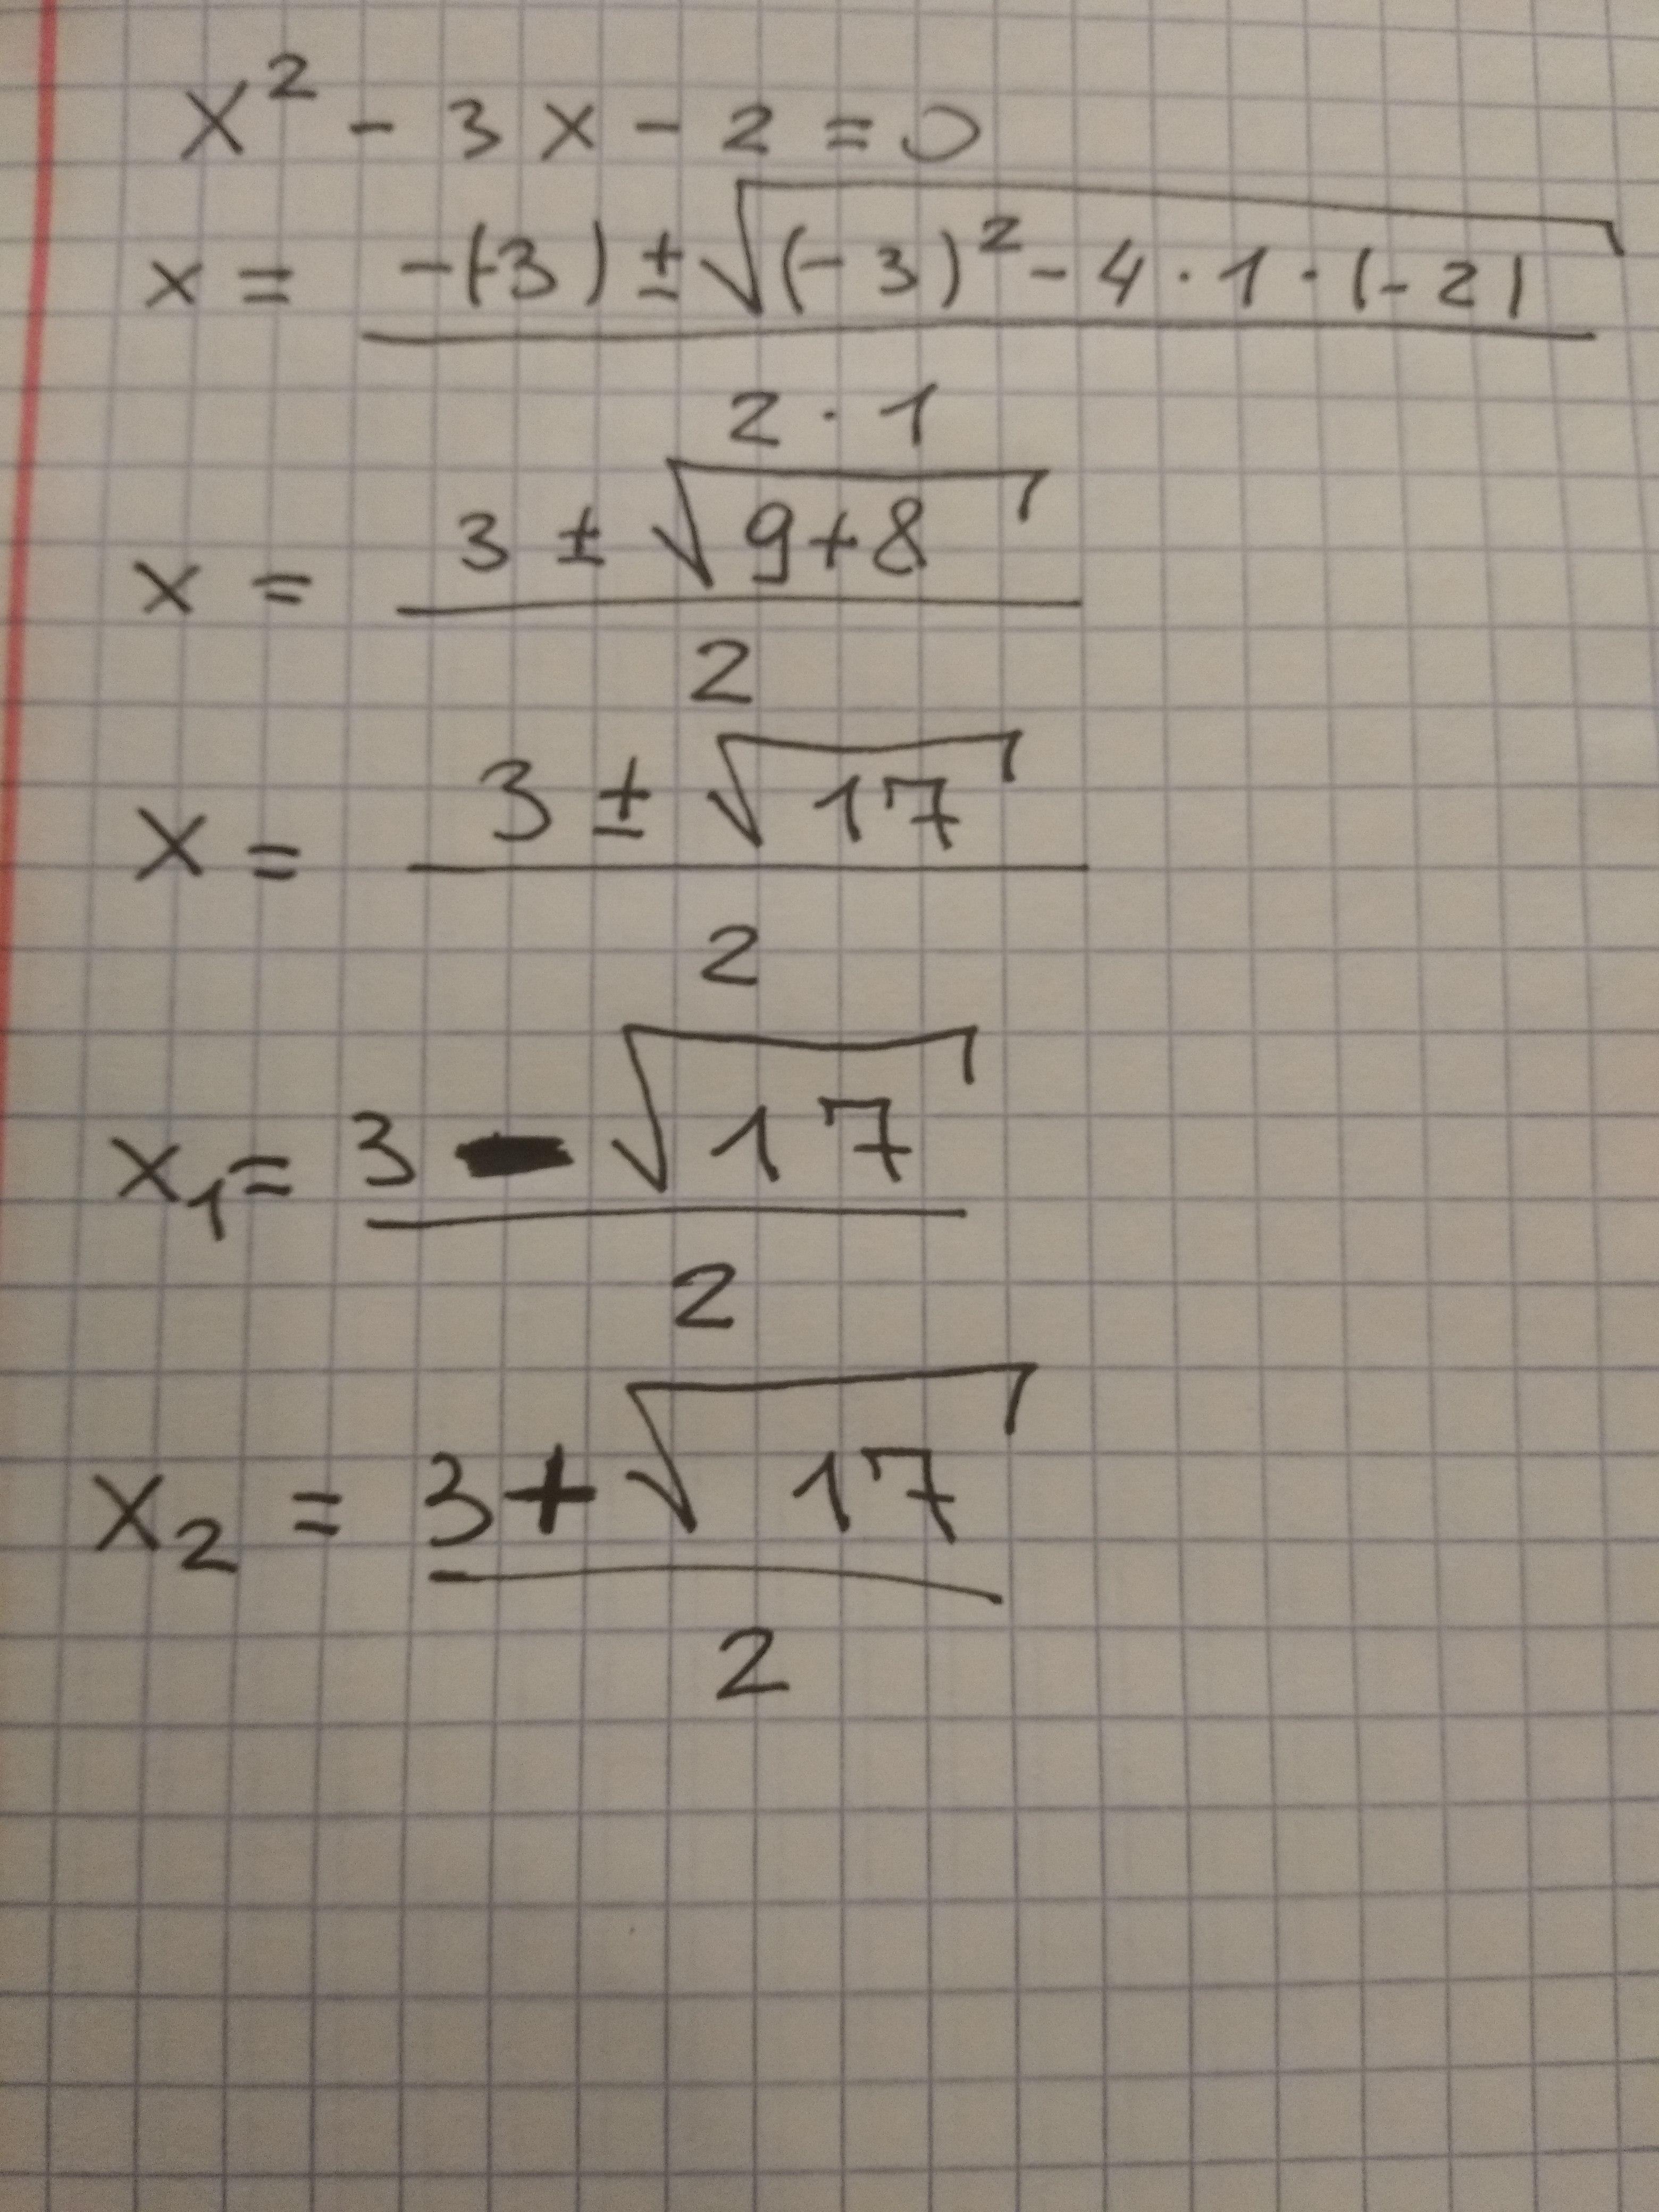 x² - 3x - 2 = 0
x = -(-3) ± √(-3)² - 4 · 1 · (-2)
2 · 1
x = 3 ± √9+8
2
x = 3 ± √17
2
x₁ = 3 - √17
2
x₂ = 3 + √17
2